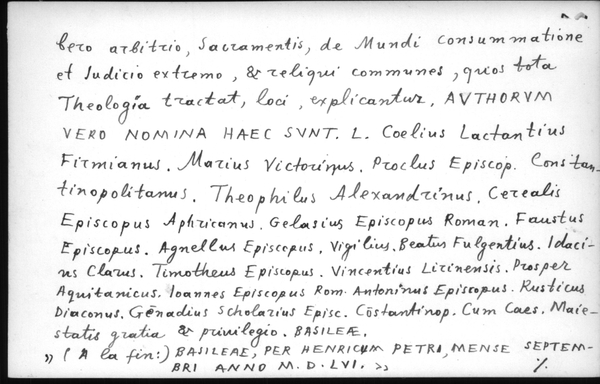 bero arbitrio, Sacramentis, de Mundi consummatione
et Iudicio extremo, & reliqui communes, quos tota
Theologia tractat, loci, explicantur. AVTHORVM
VERO NOMINA HAEC SVNT. L. Coelius Lactantius
Firmianus. Marius Victorinus. Proclus Episcop. Constan-
tinopolitanus. Theophilus Alexandrinus. Cerealis
Episcopus Aphricanus. Gelasius Episcopus Roman. Faustus
Episcopus. Agnellus Episcopus. Vigilius. Beatus Fulgentius. Idaci-
us Clarus. Timotheus Episcopus. Vincentius Lirinensis. Prosper
Aquitanicus. Ioannes Episcopus Rom. Antoninus Episcopus. Rusticus
Diaconus. Gēnadius Scholarius Episc. Cōstantinop. Cum Caes. Maie-
statis gratia & privilegio. BASILEÆ.
» (A la fin:) BASILEAE, PER HENRICUM PETRI, MENSE SEPTEM-
BRI ANNO M.D.LVI. »